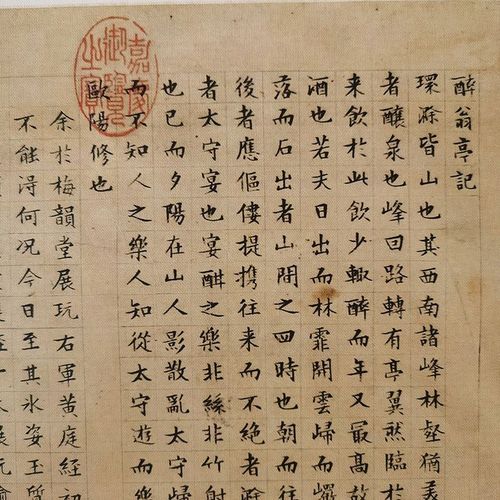 醉翁亭記
環滁皆山也其西南諸峰林壑猶
者釀泉也峰回路轉有亭翼然臨於
来飲於此飲少輒醉而年又最高故
酒也若夫日出而林霏開雲歸而巖
落而石出者山間之四時也朝而往
後者應傴僂提携往来而不絕者滁
者太守宴也宴酣之樂非絲非竹射
也已而夕陽在山人影散亂太守歸
而不知人之樂人知從太守遊而樂
歐陽修也
余於梅韻堂展玩右軍黄庭經初
不能得何況今日至其氷姿玉質
嘉慶御覽之寶